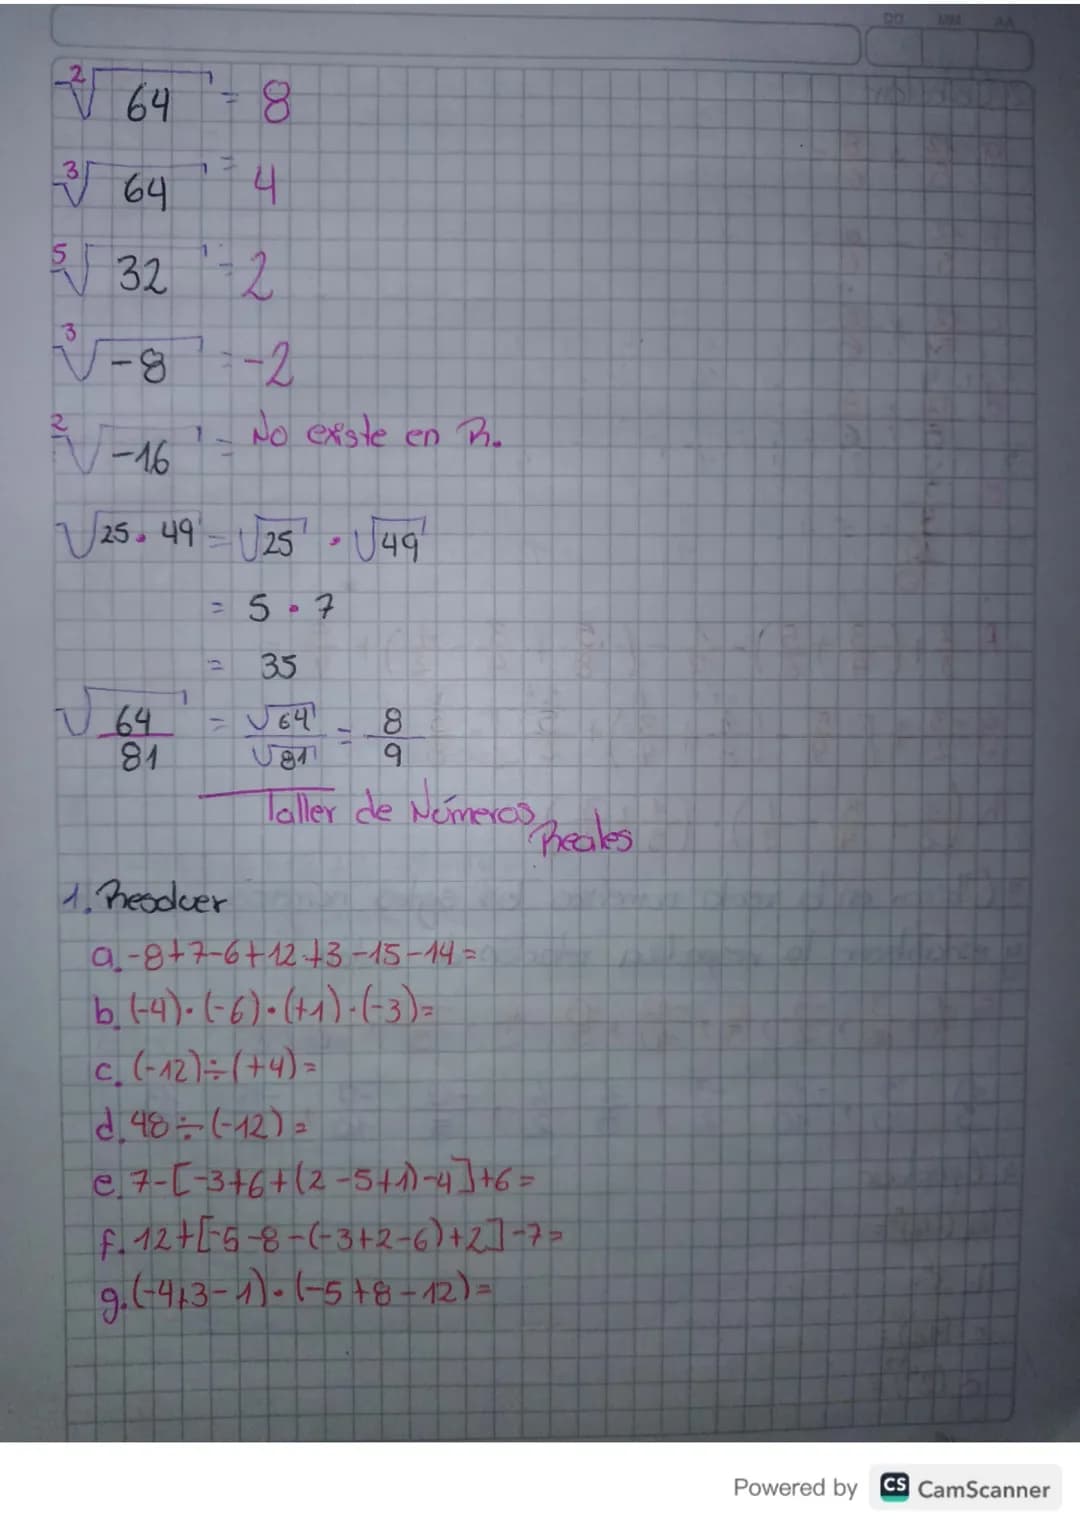 DD MM AA
²√64 = 8
³√64 = 4
⁵√32 = 2
³√-8 = -2
²√-16 = No existe en R.
√25 · 49 = √25 · √49
= 5 · 7
= 35
√64/81 = √64/√81 = 8/9
Taller de Números
Reales
1. Resolver
a. -8+7-6+12+3-15-14=
b. (-4)·(-6)·(+1)·(-3)=
c. (-12)÷(+4)=
d. 48÷(-12)=
e. 7-[-3+6+(2-5+1)-4]+6=
f. 12+[-5-8-(-3+2-6)+2]-7=
g. (-4+3-1)·(-5+8-12)=
Powered by CS CamScanner